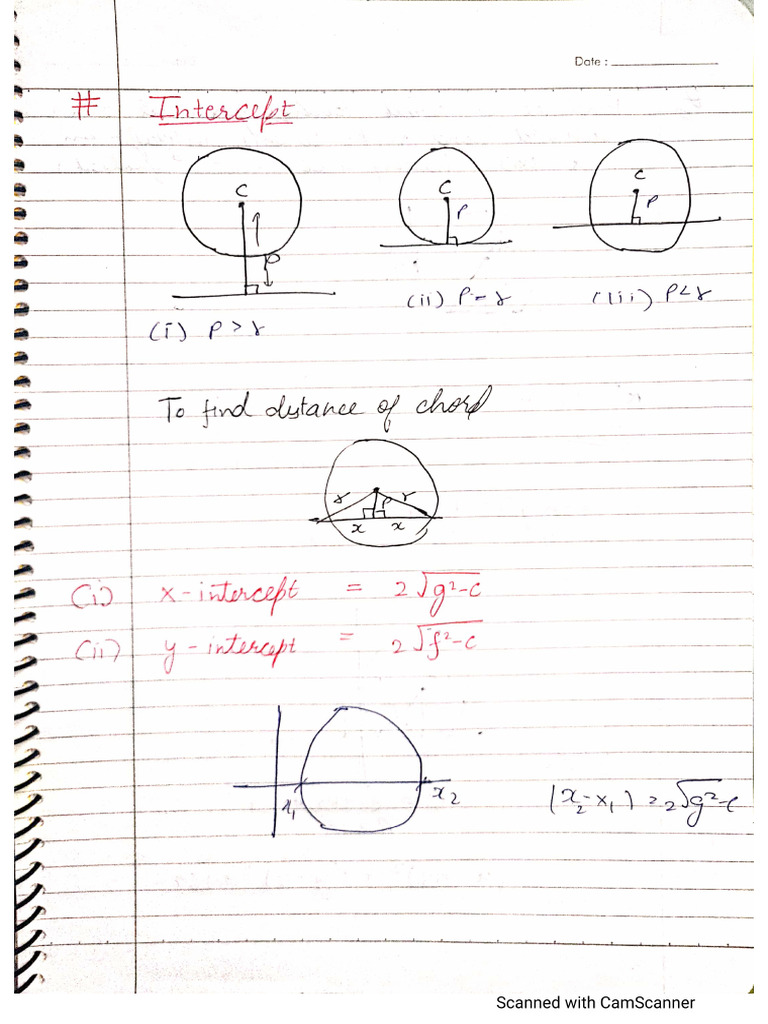 Date :
# Intercept
C
C
C
P
P
P
(i) P > r
(ii) P = r
(iii) P < r
To find distance of chord
r P r
x x
(i) x - intercept = 2√g²-c
(ii) y - intercept = 2√f²-c
x₁
x₂
|x₂-x₁| = 2√g²-c
Scanned with CamScanner